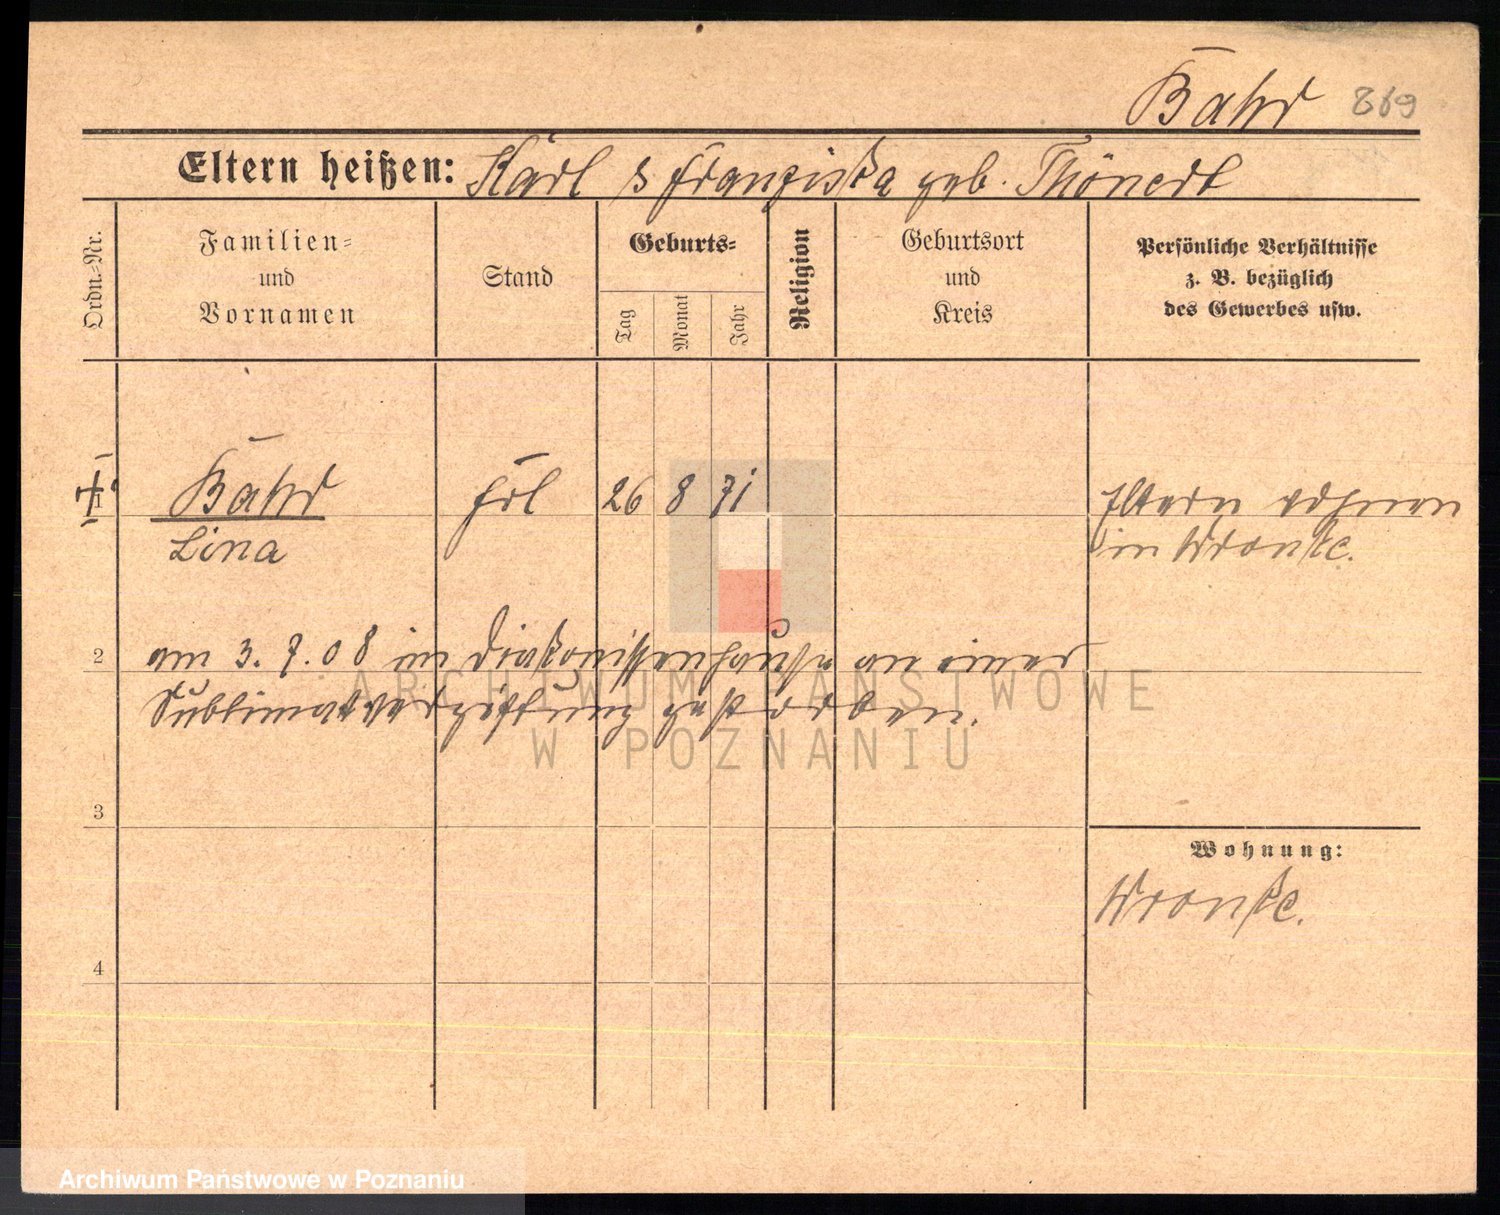 Bähr 869
Eltern heißen: Karl & Franziska geb. Thönert
Ordn.-Nr.
Familien-
und
Vornamen
Stand
Geburts-
Tag
Monat
Jahr
Religion
Geburtsort
und
Kreis
Persönliche Verhältnisse
z. B. bezüglich
des Gewerbes usw.
1
Bähr
Lina
Frl
26 8 71
Eltern wohnen
in Wronke.
2
am 3. 7. 08 im Diakonissenhause an einer
Sublimatvergiftung gestorben.
ARCHIWUM PAŃSTWOWE
W POZNANIU
3
Wohnung:
Wronke.
4
Archiwum Państwowe w Poznaniu